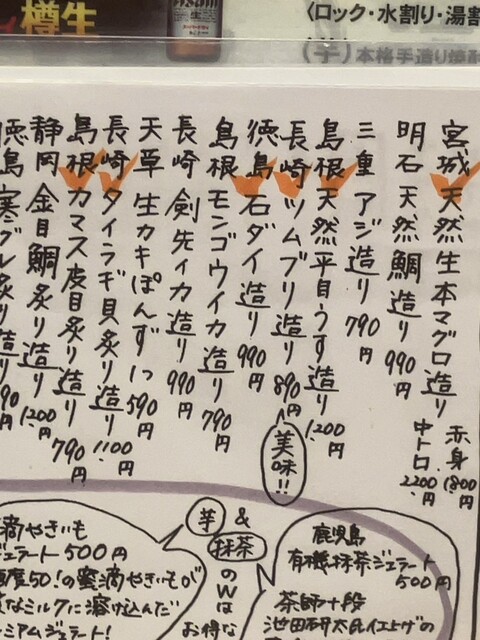 樽生
〈ロック・水割り・湯割
(芋) 本格手造り焼酎
宮城 天然生本マグロ造り 赤身 1800円 中トロ 2200円
明石 天然鯛造り 990円
三重 アジ造り 790円
島根 天然平目うす造り 1200円
長崎 ツムブリ造り 890円
美味!!
徳島 石ダイ造り 990円
島根 モンゴウイカ造り 790円
長崎 剣先イカ造り 990円
天草 生カキぽんず1つ 590円
長崎 タイラギ貝炙り造り 1100円
島根 カマス皮目炙り造り 790円
静岡 金目鯛炙り造り 1200円
徳島 寒グレ炙り造り 90円
芋 & 抹茶
のWは
お得な
鹿児島
有機抹茶ジェラート
500円
茶師十段
池田研太氏仕上げの
滴やきいも
ジェラート 500円
糖度50!の蜜滴やきいもが
なミルクに溶け込んだ
ミアムジェラート!